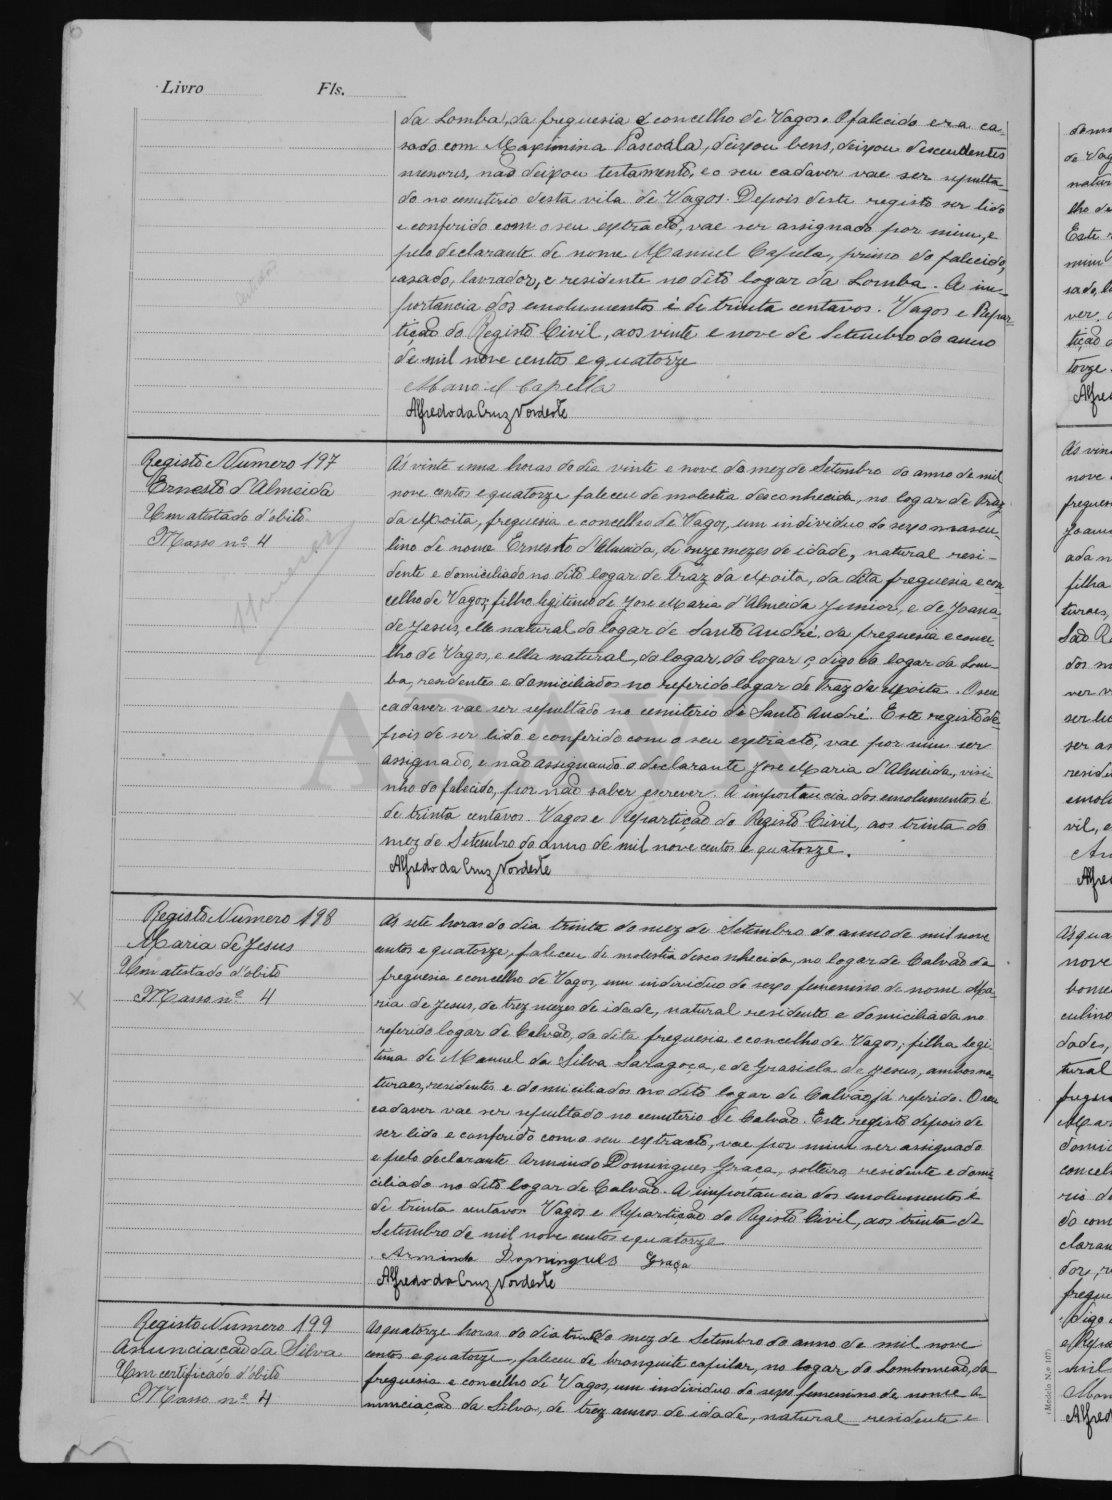 Livro Fls.
da Lomba, da freguesia e concelho de Vagos. O falecido era ca-
sado com Maximina Pascoala, deixou bens, deixou descendentes
menores, não deixou testamento, e o seu cadaver vae ser sepulta-
do no cemiterio desta vila de Vagos. Depois deste registo ser lido
e conferido com o seu extracto, vae ser assignado por mim, e
pelo declarante de nome Manuel Capela, primo do falecido,
casado, lavrador, e residente no dito logar da Lomba. A im-
portancia dos emolumentos é de trinta centavos. Vagos e Repar-
tição do Registo Civil, aos vinte e nove de Setembro do anno
de mil nove centos e quatorze
Manoel Capella
Alfredo da Cruz Nordeste
Registo Numero 197
Ernesto d'Almeida
Um atestado d'obito.
Masso nº 4
Ás vinte uma horas do dia vinte e nove do mez de Setembro do anno de mil
nove centos e quatorze faleceu de molestia desconhecida, no logar de Fraz
da Moita, freguesia e concelho de Vagos, um individuo do sexo mascu-
lino de nome Ernesto d'Almeida, de onze mezes de idade, natural resi-
dente e domiciliado no dito logar de Fraz da Moita, da dita freguesia e con-
celho de Vagos, filho legitimo de José Maria d'Almeida Junior, e de Joana
de Jesus, elle natural do logar de Santo André, da freguesia e conce-
lho de Vagos, e ella natural, do logar, do logar, digo do logar da Lom-
ba, residentes e domiciliados no referido logar de Fraz da Moita. O seu
cadaver vae ser sepultado no cemiterio de Santo André. Este registo de-
pois de ser lido e conferido com o seu extracto, vae por mim ser
assignado, e não assignando o declarante José Maria d'Almeida, visi-
nho do falecido, por não saber escrever. A importancia dos emolumentos é
de trinta centavos. Vagos e Repartição do Registo Civil, aos trinta do
mez de Setembro do anno de mil nove centos e quatorze.
Alfredo da Cruz Nordeste
Registo Numero 198
Maria de Jesus
Um atestado d'obito
Masso nº 4
Ás sete horas do dia trinta do mez de Setembro do anno de mil nove
centos e quatorze, faleceu de molestia desconhecida, no logar de Calvão da
freguesia e concelho de Vagos, um individuo de sexo femenino de nome Ma-
ria de Jesus, de trez mezes de idade, natural residente e domiciliada no
referido logar de Calvão, da dita freguesia e concelho de Vagos, filha legi-
tima de Manuel da Silva Saragoça, e de Grasiela de Jesus, ambos na-
turaes, residentes e domiciliados no dito logar de Calvão já referido. O seu
cadaver vae ser sepultado no cemiterio de Calvão. Este registo depois de
ser lido e conferido com o seu extracto, vae por mim ser assignado
e pelo declarante Armindo Domingues Graça, solteiro, residente e domi-
ciliado no dito logar de Calvão. A importancia dos emolumentos é
de trinta centavos. Vagos e Repartição do Registo Civil, aos trinta de
Setembro de mil nove centos e quatorze
Armindo Domingues Graça
Alfredo da Cruz Nordeste
Registo Numero 199
Anunciação da Silva
Um certificado d'obito
Masso nº 4
Ás quatorze horas do dia trinta do mez de Setembro do anno de mil nove
centos e quatorze, faleceu de bronquite capilar, no logar, do Lombomeão, da
freguesia e concelho de Vagos, um individuo do sexo femenino de nome A-
nunciação da Silva, de trez annos de idade, natural residente e